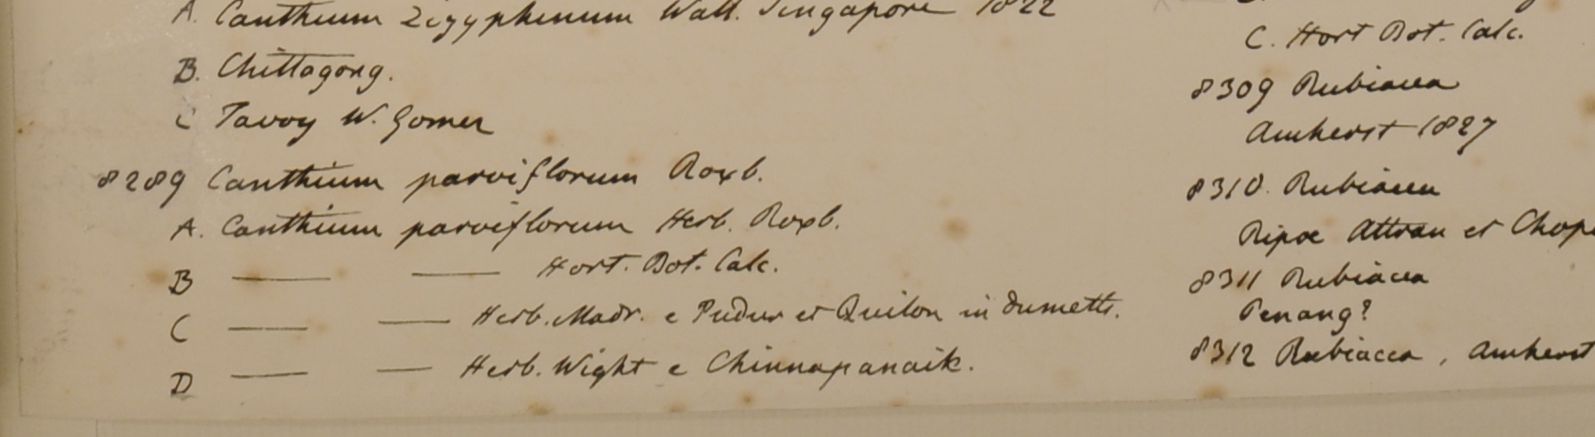 A. Canthium Zizyphinum Wall. Singapore 1822
B. Chittagong.
C Tavoy W. Gomez
8289 Canthium parviflorum Roxb.
A. Canthium parviflorum Herb. Roxb.
B —— —— Hort. Bot. Calc.
C —— —— Herb. Madr. e Pudur et Quilon in dumetts.
D —— —— Herb. Wight e Chinnapanaik.
C. Hort Bot. Calc.
8309 Rubiacea
Amherst 1827
8310. Rubiacea
Ripae Attran et Chap
8311 Rubiacea
Penang?
8312 Rubiacea, Amherst